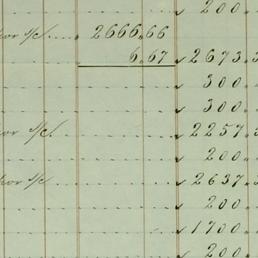 200.
2666.66
6.67 2673.3
300.
300.
2257.3
200.
2637.3
200.
1700.
200.